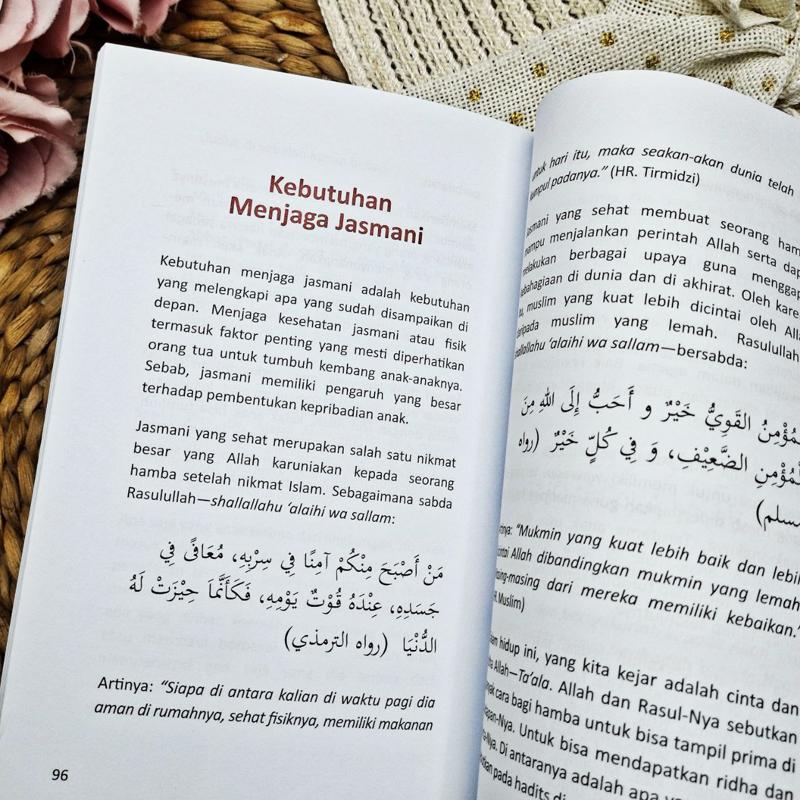 Kebutuhan
Menjaga Jasmani
Kebutuhan menjaga jasmani adalah kebutuhan
yang melengkapi apa yang sudah disampaikan di
depan. Menjaga kesehatan jasmani atau fisik
termasuk faktor penting yang mesti diperhatikan
orang tua untuk tumbuh kembang anak-anaknya.
Sebab, jasmani memiliki pengaruh yang besar
terhadap pembentukan kepribadian anak.
Jasmani yang sehat merupakan salah satu nikmat
besar yang Allah karuniakan kepada seorang
hamba setelah nikmat Islam. Sebagaimana sabda
Rasulullah—shallallahu ‘alaihi wa sallam:
مَنْ أَصْبَحَ مِنْكُمْ آمِنًا فِي سِرْبِهِ، مُعَافًى فِي
جَسَدِهِ، عِنْدَهُ قُوْتُ يَوْمِهِ، فَكَأَنَّمَا حِيْزَتْ لَهُ
الدُّنْيَا (رواه الترمذي)
Artinya: “Siapa di antara kalian di waktu pagi dia
aman di rumahnya, sehat fisiknya, memiliki makanan
96
hari itu, maka seakan-akan dunia telah
padanya.” (HR. Tirmidzi)
yang sehat membuat seorang
menjalankan perintah Allah serta
melakukan berbagai upaya guna
di dunia dan di akhirat. Oleh
muslim yang kuat lebih dicintai oleh
muslim yang lemah. Rasulullah
‘alaihi wa sallam—bersabda:
القَوِيُّ خَيْرٌ و أَحَبُّ إِلَى اللهِ مِنَ
الضَّعِيْفِ، وَ فِي كُلٍّ خَيْرٌ (رواه
“Mukmin yang kuat lebih baik dan lebih
Allah dibandingkan mukmin yang lemah
dari mereka memiliki kebaikan.”
Muslim)
hidup ini, yang kita kejar adalah cinta dan
Allah—Ta’ala. Allah dan Rasul-Nya sebutkan
cara bagi hamba untuk bisa tampil prima di
Untuk bisa mendapatkan ridha dan
Di antaranya adalah apa
pada hadits